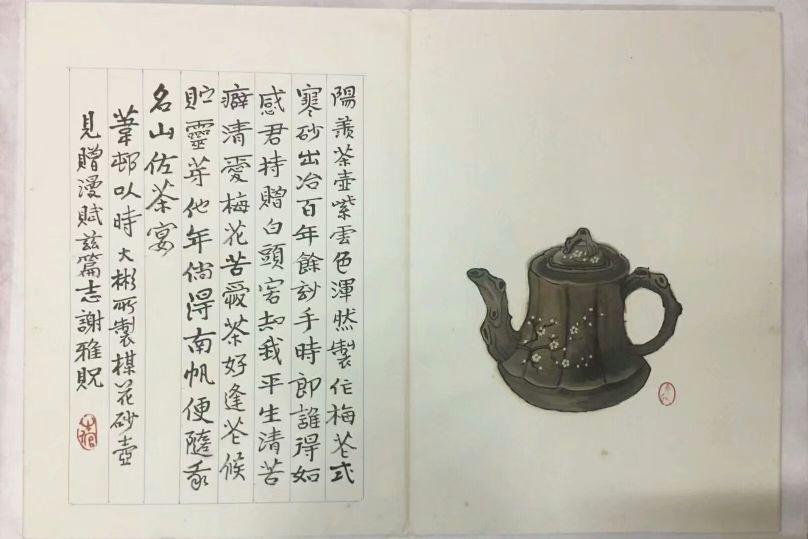 陽羨茶壺紫雲色渾然製作梅花式
寒砂出冶百年餘妙手時郎誰得如
感君持贈白頭客知我平生清苦
癖清愛梅花苦愛茶好逢花候
貯靈芽他年倘得南帆便隨我
名山佐茶宴
葦邨以時大彬所製楳花砂壺
見贈漫賦茲篇志謝雅貺